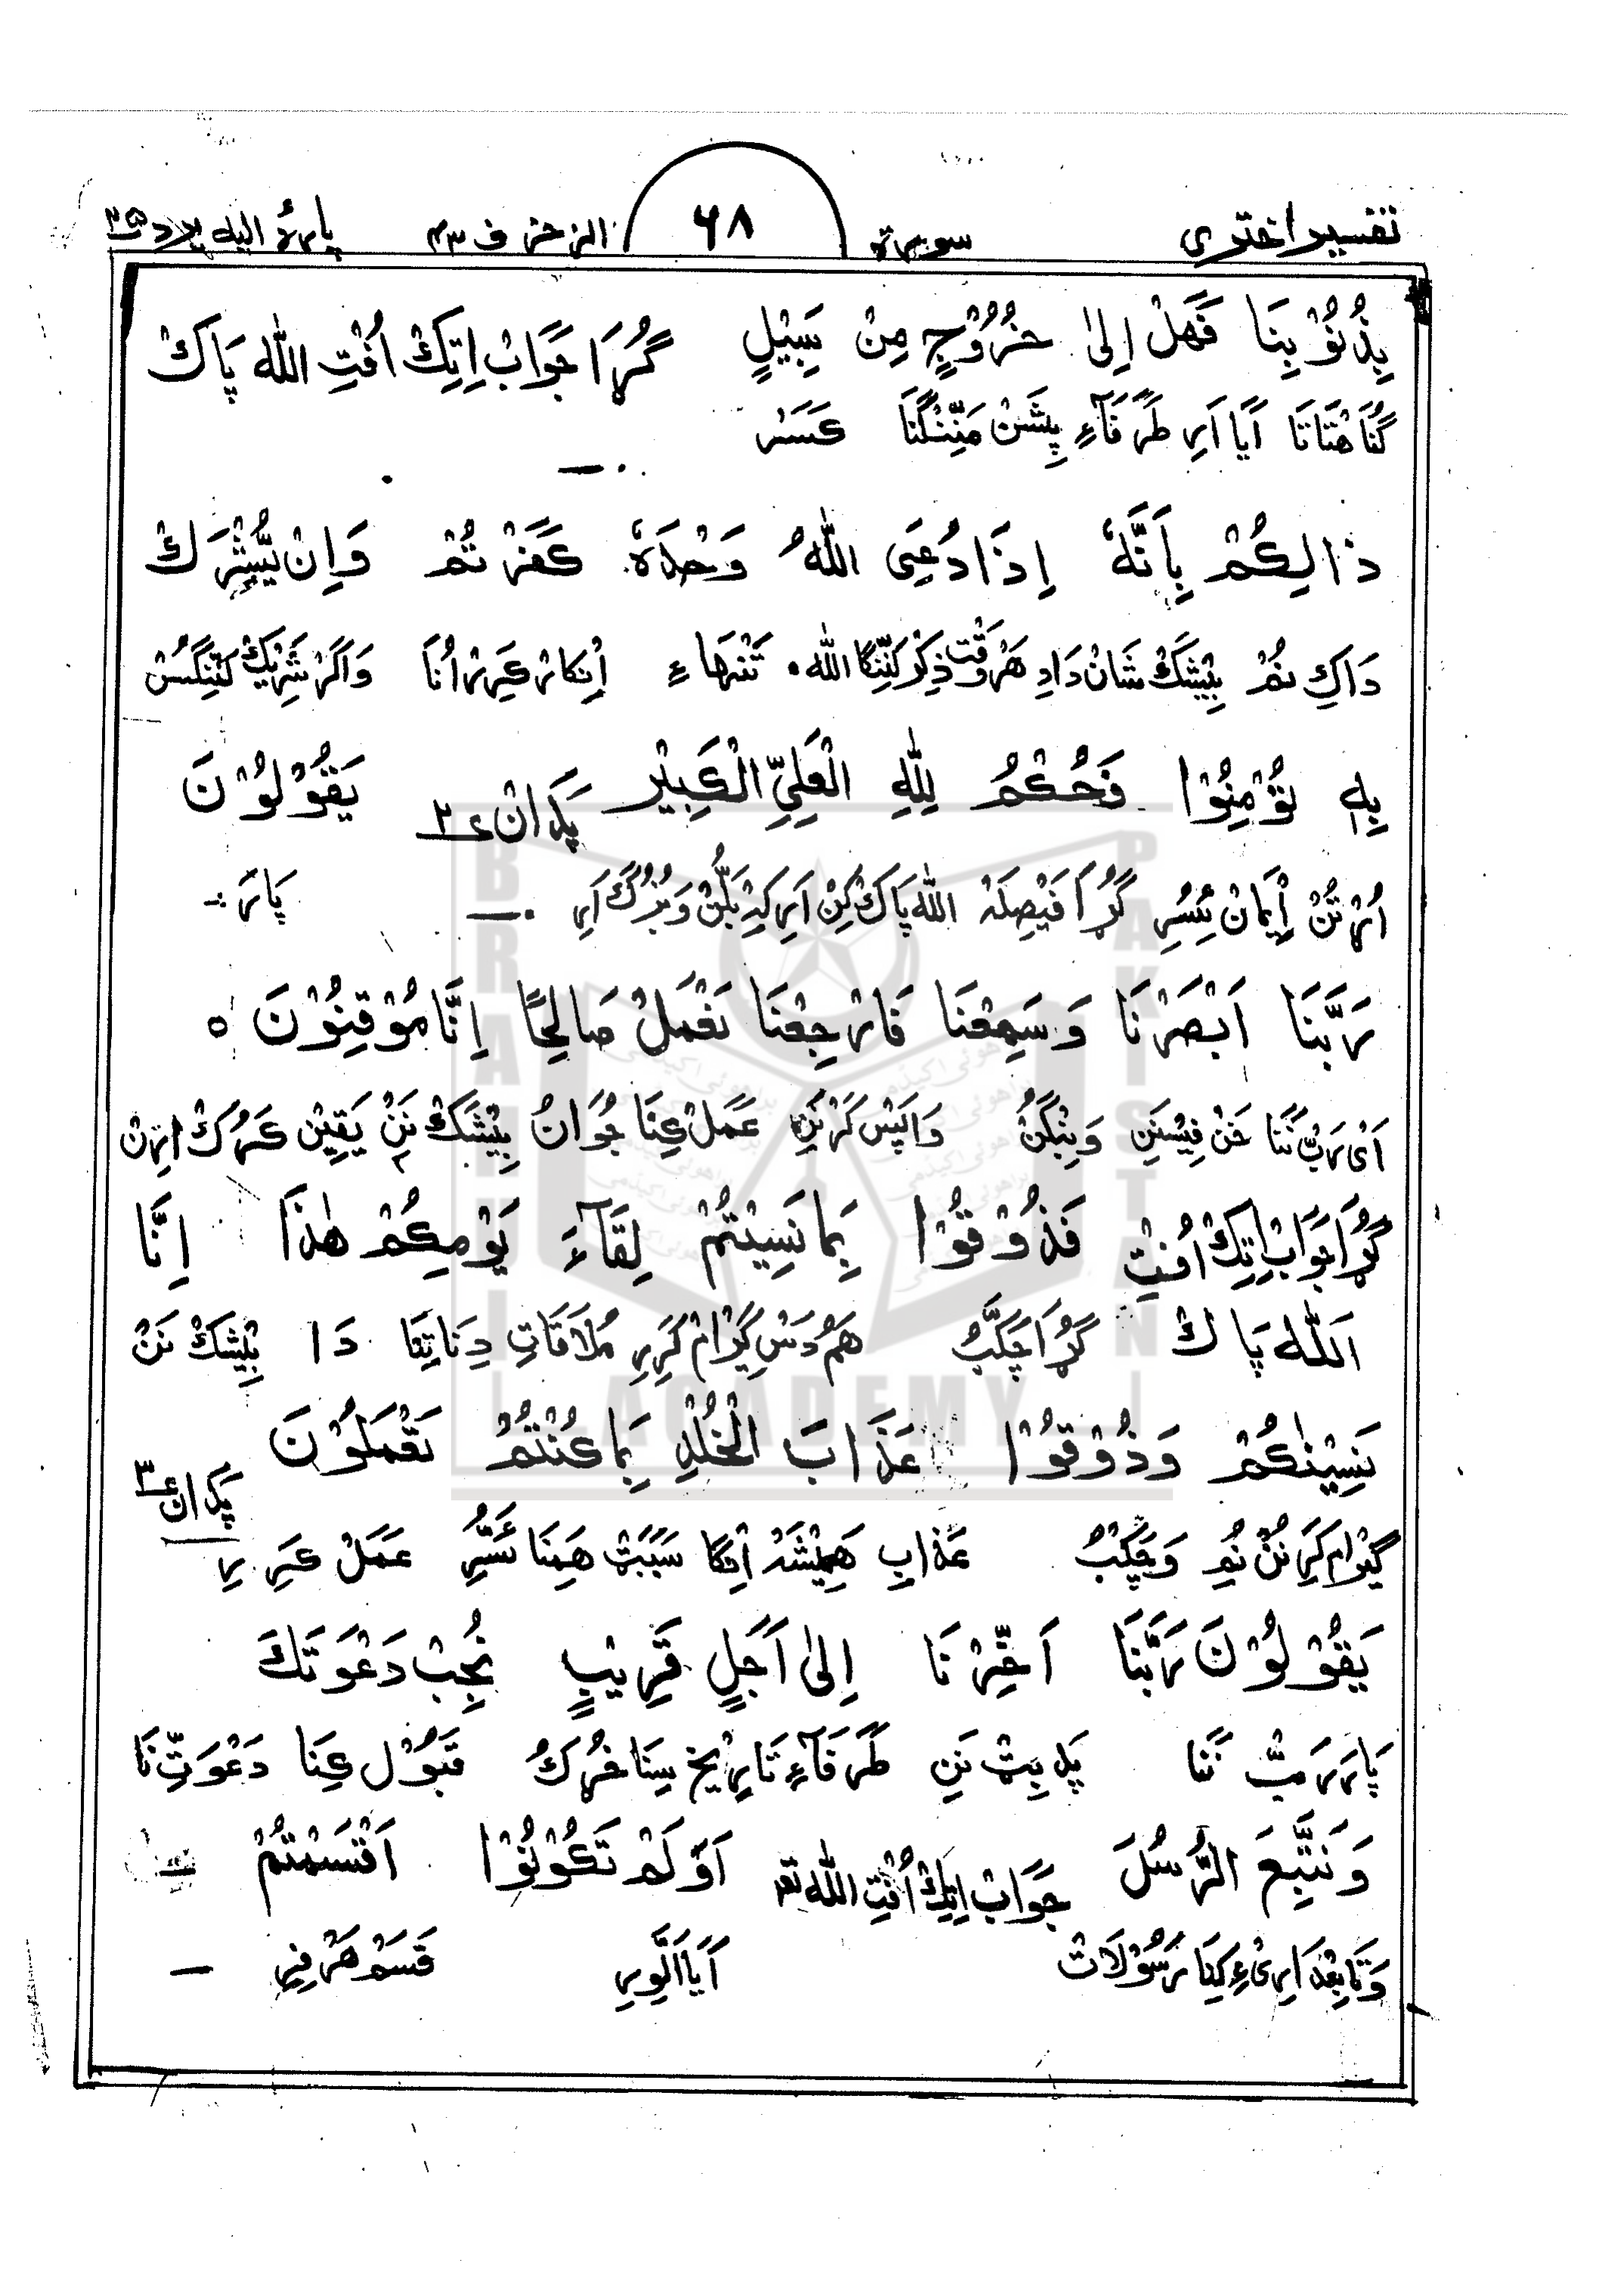 تفسیر اختری سورۃ ٦٨ الزخرف ٤٣ پارۂ الیه یرد ٢٥
بِذُنُوْبِنَا فَهَلْ اِلیٰ خُرُوْجٍ مِنْ سَبِیْلٍ گُڑَا جَوَابْ اِتِکْ اُفْتِ اللّٰه پَاکْ
گُنَاهْتَانَا آیَا اَرِ طَرَفَآءِ پِشَنْ مَنِّنْگْنَا کَسَرْ
ذَالِکُمْ بِاَنَّهٗ اِذَا دُعِیَ اللّٰهُ وَحْدَهٗ کَفَرْتُمْ وَاِنْ یُّشْرَکْ
دَاکِ نُمْ بِیْشَکْ شَانْ دَادِ هَرْوَقْت ذِکْر کَنِّنْگَا اللّٰه تَنْهَاءِ اِنْکَار کَرِیْرْ اُنَا وَاَگَرْ شَرِیْکْ کَنِّنْگَسُنْ
بِهٖ تُؤْمِنُوْا فَحُکْمُ لِلّٰهِ الْعَلِیِّ الْکَبِیْر پَدَ اَنْ ٢ یَقُوْلُوْنَ
اُرْتُنْ اِیْمَانْ ئِسُرِ گُڑَا فَیْصِلَهْ اللّٰه پَاکْ کِنْ اَرِ کِهْ بَلُّنْ وَبُزُرْگ اَرِ پَارَ
رَبَّنَا اَبْصَرْنَا وَسَمِعْنَا فَارْجِعْنَا نَعْمَلْ صَالِحًا اِنَّا مُوْقِنُوْنَ ٥
اَیْ رَبّ نَنَا خَنْ فِیْسُنَنِ وَبِنْگُنُ وَاپَسْ کَرْنَنِ عَمَلْ کِنَا جُوَانُ بِیْشَکْ نَنْ یَقِیْن کَرُکْ اَرِنْ
گُڑَا جَوَابْ اِتِکْ اُفْتِ فَذُوْقُوْا بِمَا نَسِیْتُمْ لِقَآءَ یَوْمِکُمْ هٰذَا اِنَّا
اَللّٰه پَاکْ گُڑَا چَکَّبُ هَمُوْدَسْ گِیْرَامْ کَرِرِ مُلَاقَاتِ دِنَاتِنَا دَا بِیْشَکْ نَنْ
نَسِیْنٰکُمْ وَذُوْقُوْا عَذَابَ الْخُلْدِ بِمَا کُنْتُمْ تَعْمَلُوْنَ پَدَ اَنْ ٣
گِیْرَامْ کَرِنَنْ نُمِ وَچَکَبْ عَذَابِ هَمِیْشَهْ اِنْگَا سَبَبَتْ هَمِنَا ئَسُّرِ عَمَلْ کَرِرِ
یَقُوْلُوْنَ رَبَّنَا اَخِّرْنَا اِلیٰ اَجَلٍ قَرِیْبٍ نُّجِبْ دَعْوَتَکَ
پَارَرَ رَبّ نَنَا پَدِ بِتْ نَنِ طَرَفَآءِ تَارِیْخ سِنَا خُرُکُ قَبُوْل کِنَا دَعْوَتِّنَا
وَنَتَّبِعَ الرُّسُلَ جَوَابْ اِتِکْ اُفْتِ اللّٰه اَوَلَمْ تَکُوْنُوْا اَقْسَمْتُمْ
وَتَابِعْدَارِیْءِ کِنَا رَسُوْلَاتْ آیَا اَلَّوِرِ قَسَمْ هَرْفِرِ